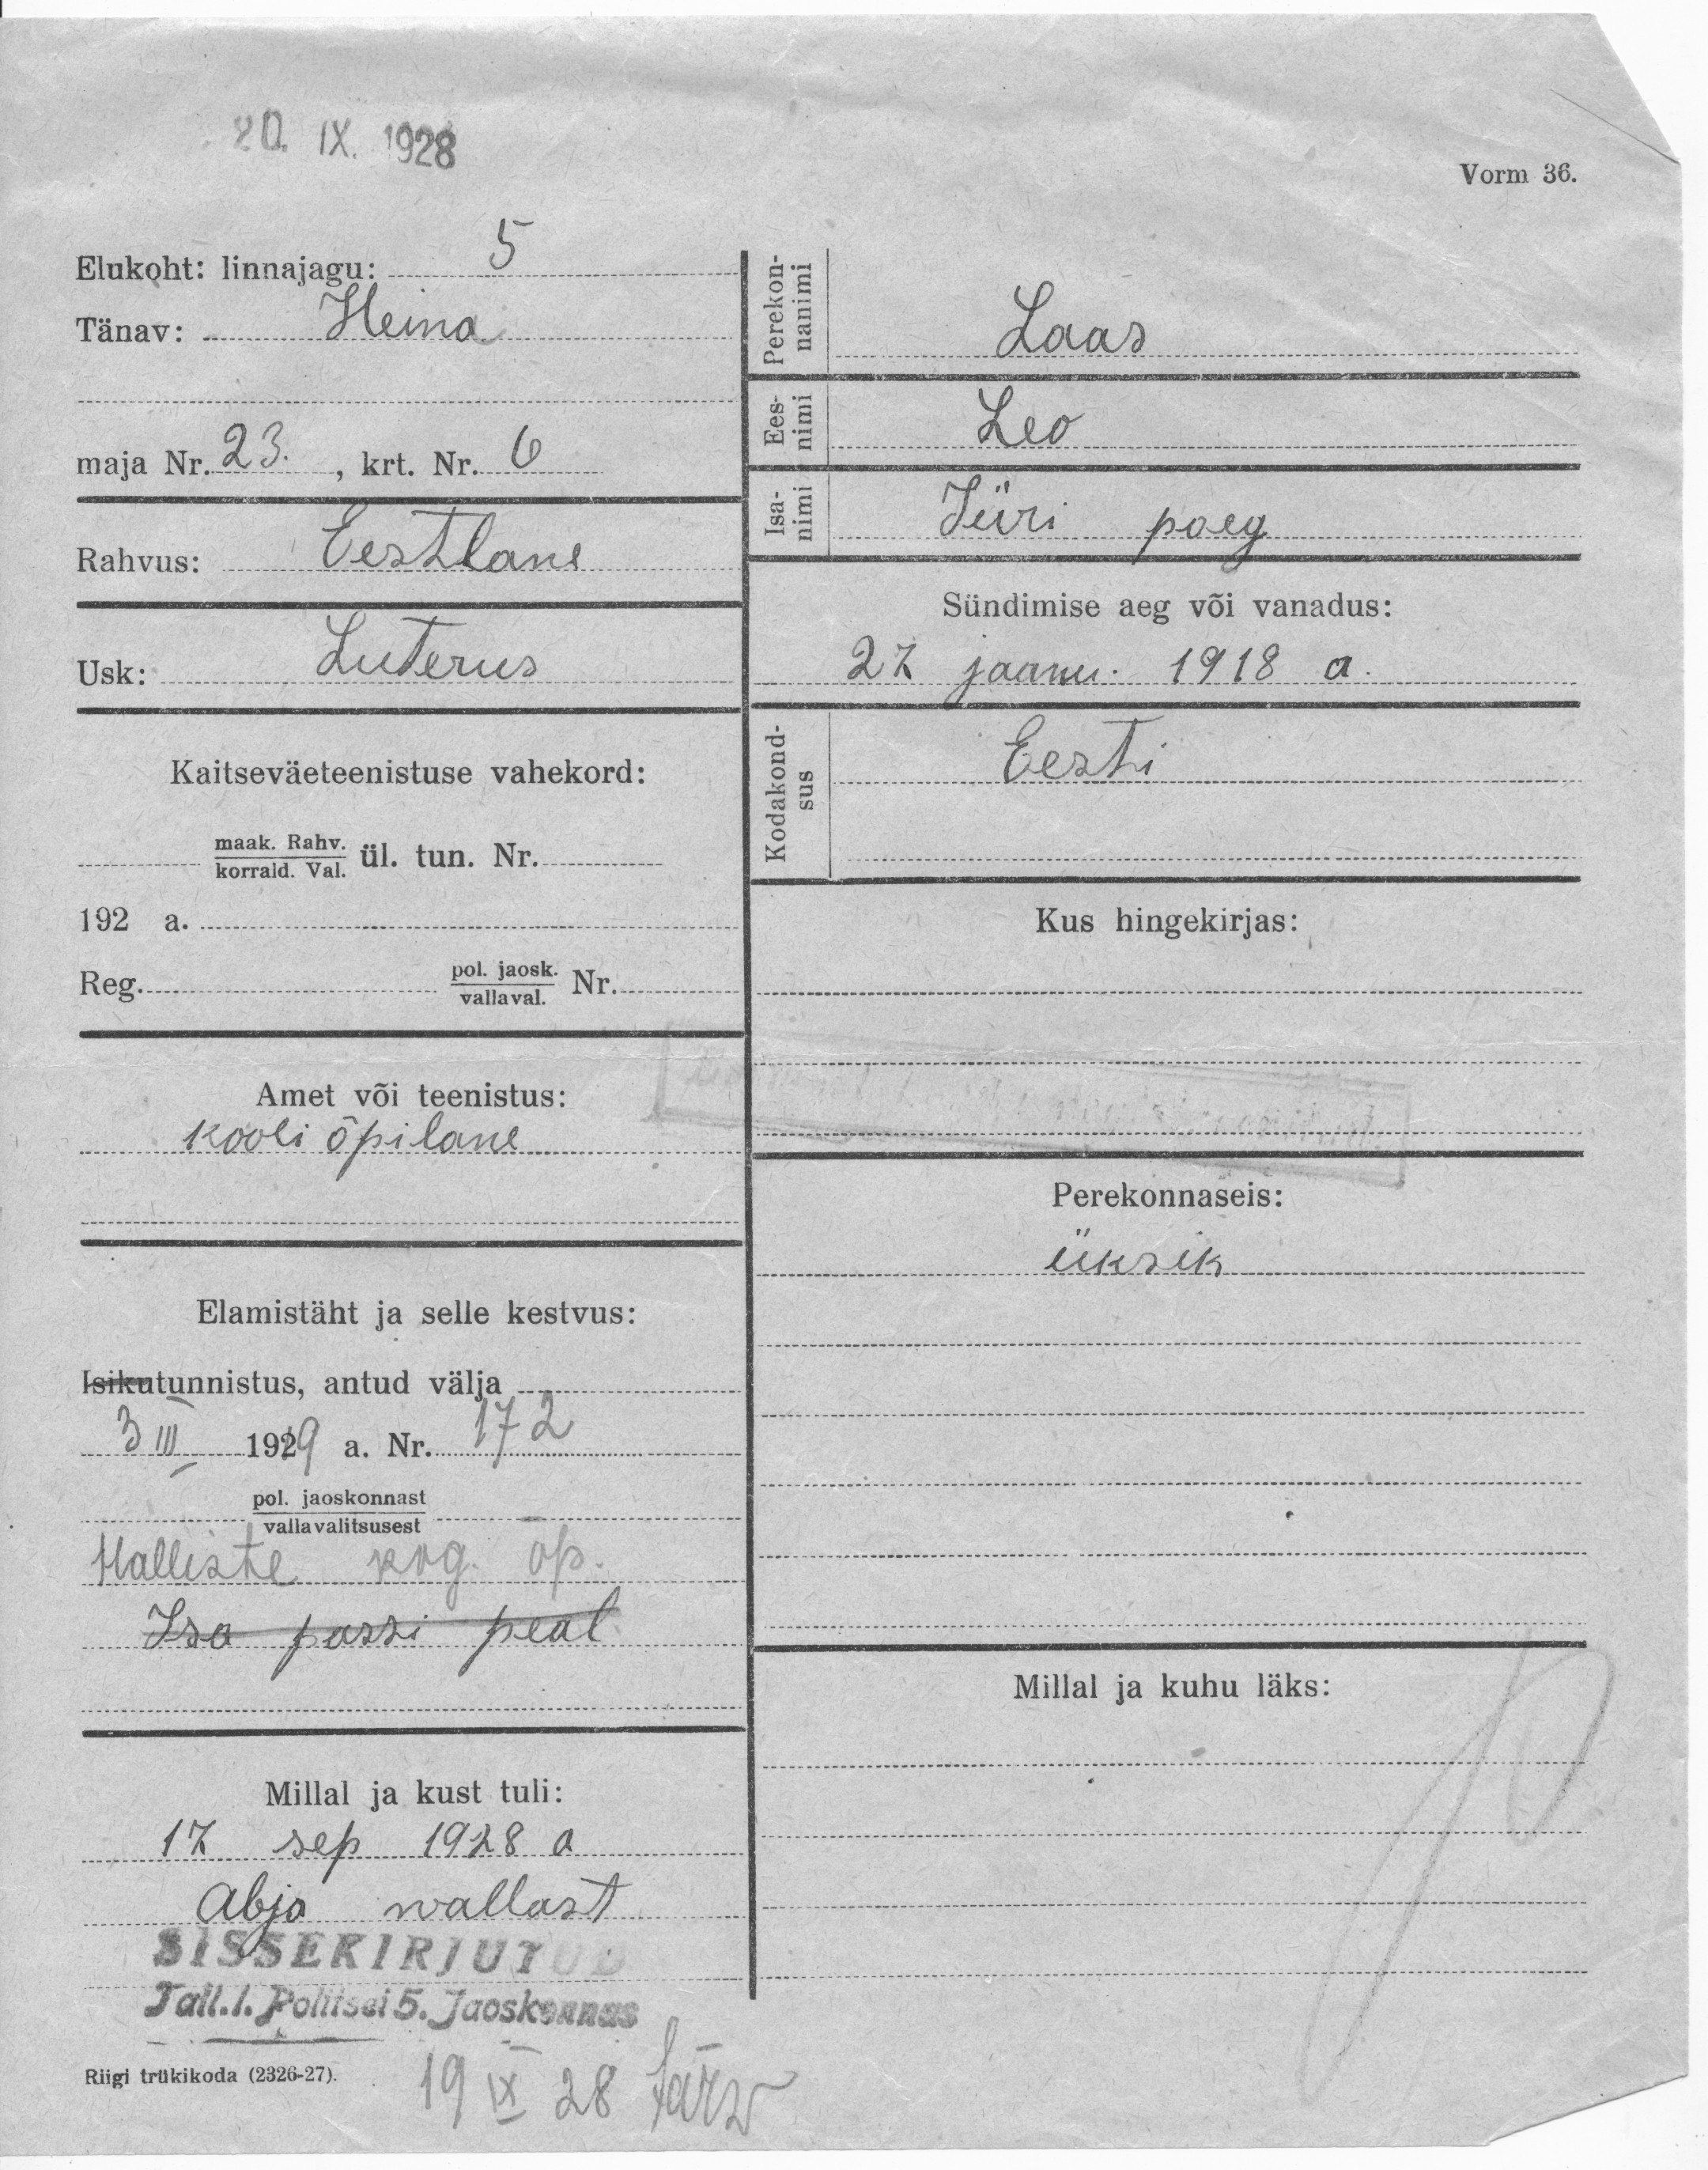 20. IX. 1928
Vorm 36.
Elukoht: linnajagu: 5
Tänav: Heina
maja Nr. 23. , krt. Nr. 6
Rahvus: Eestlane
Usk: Luterus
Kaitseväeteenistuse vahekord:
maak. Rahv.
korrald. Val.
ül. tun. Nr.
192 a.
Reg. pol. jaosk. Nr.
vallaval.
Amet või teenistus:
kooli õpilane
Elamistäht ja selle kestvus:
Isikutunnistus, antud välja
3 III 1929 a. Nr. 172
pol. jaoskonnast
vallavalitsusest
Halliste kog. õp.
Isa passi peal
Millal ja kust tuli:
17 sep 1928 a
Abja wallast
SISSEKIRJUTUD
Tall.l. Politsei 5. Jaoskonnas
Riigi trükikoda (2326-27).
19 IX 28
Perekon-
nanimi
Laas
Ees-
nimi
Leo
Isa-
nimi
Jüri poeg
Sündimise aeg või vanadus:
27 jaanu. 1918 a.
Kodakond-
sus
Eesti
Kus hingekirjas:
Perekonnaseis:
üksik
Millal ja kuhu läks: